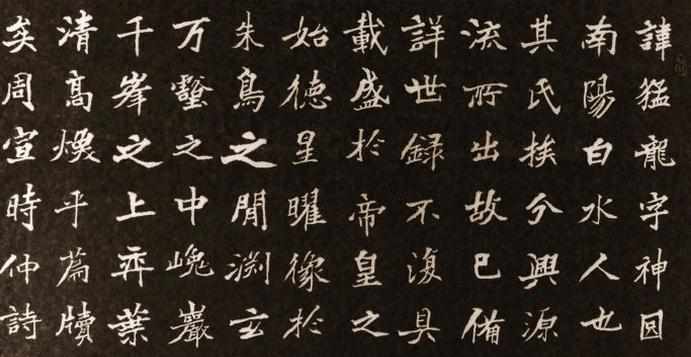 諱猛龍字神冏
南陽白水人也
其氏族分興源
流所出故已備
詳世録不復具
載盛於帝皇之
始德星曜像於
朱鳥之閒淵玄
万壑之中巉巖
千峯之上弈葉
清高煥乎篇牘
矣周宣時仲詩